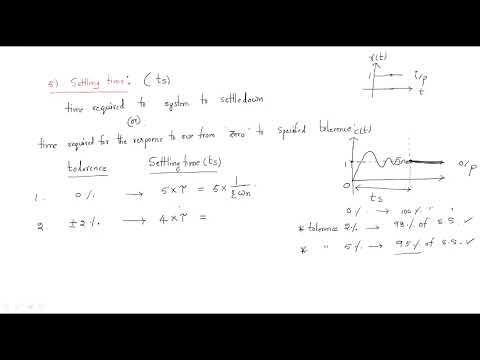 5) Settling time: (ts)
time required to system to settledown
(or)
time required for the response to rise from "zero" to specified tolerence:
tolerence Settling time (ts)
1. 0% → 5×τ = 5×1/ξωn
2. ±2% → 4×τ =
r(t)
1
i/p
t
c(t)
1
0
o/p
ts
0% → 100% " "
* tolerance 2% → 98% of s.s. ✓
* " 5% → 95% of s.s. ✓